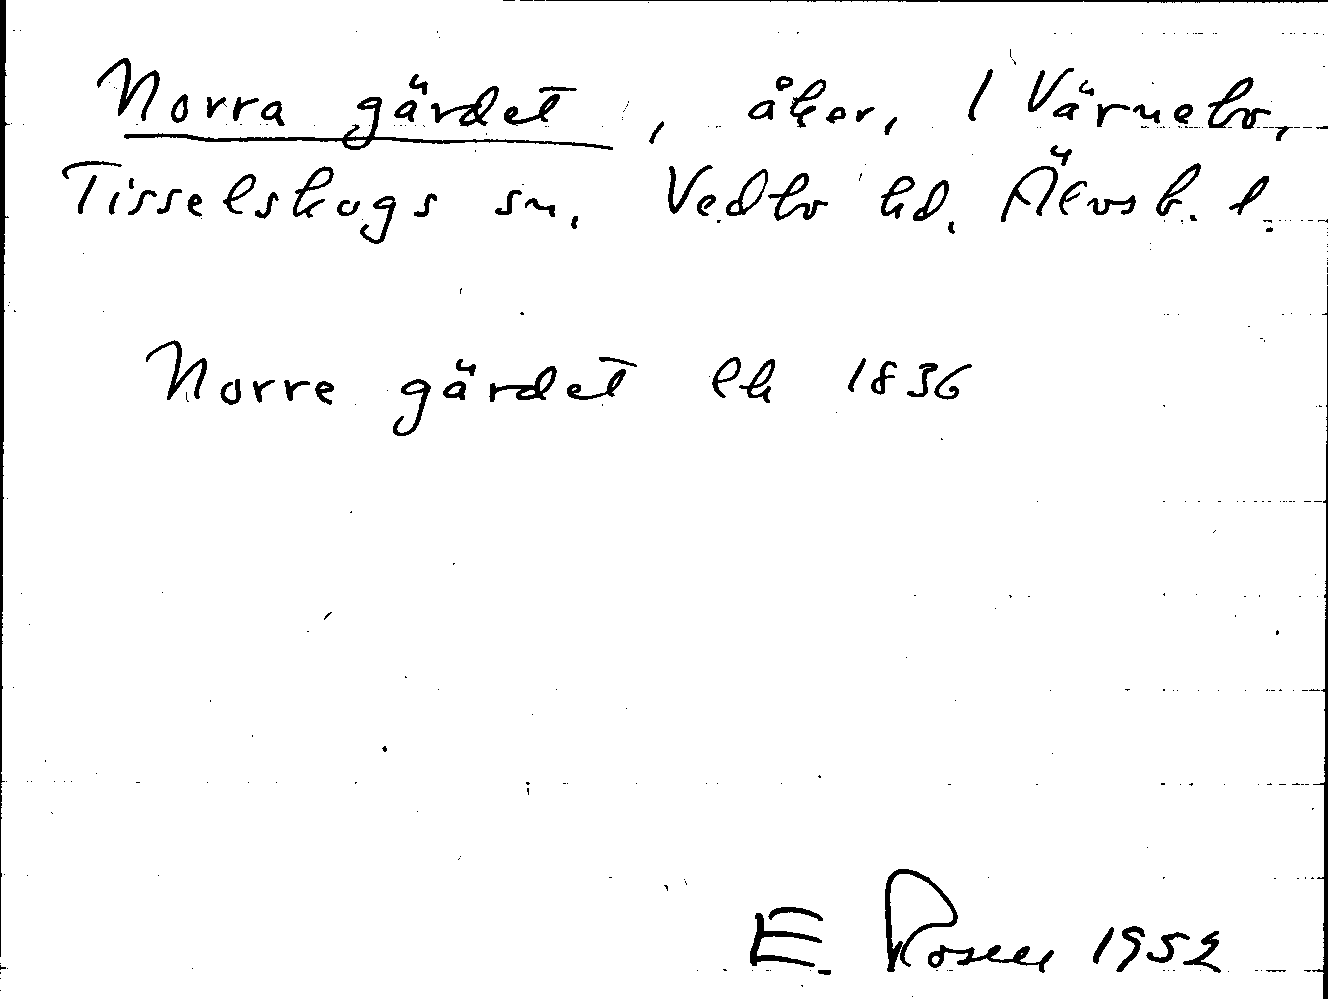 Norra gärdet, åker, 1 Värnebo,
Tisselskogs sn. Vedbo hd. Älvsb. l.
Norre gärdet lh 1836
E. Rosell 1952